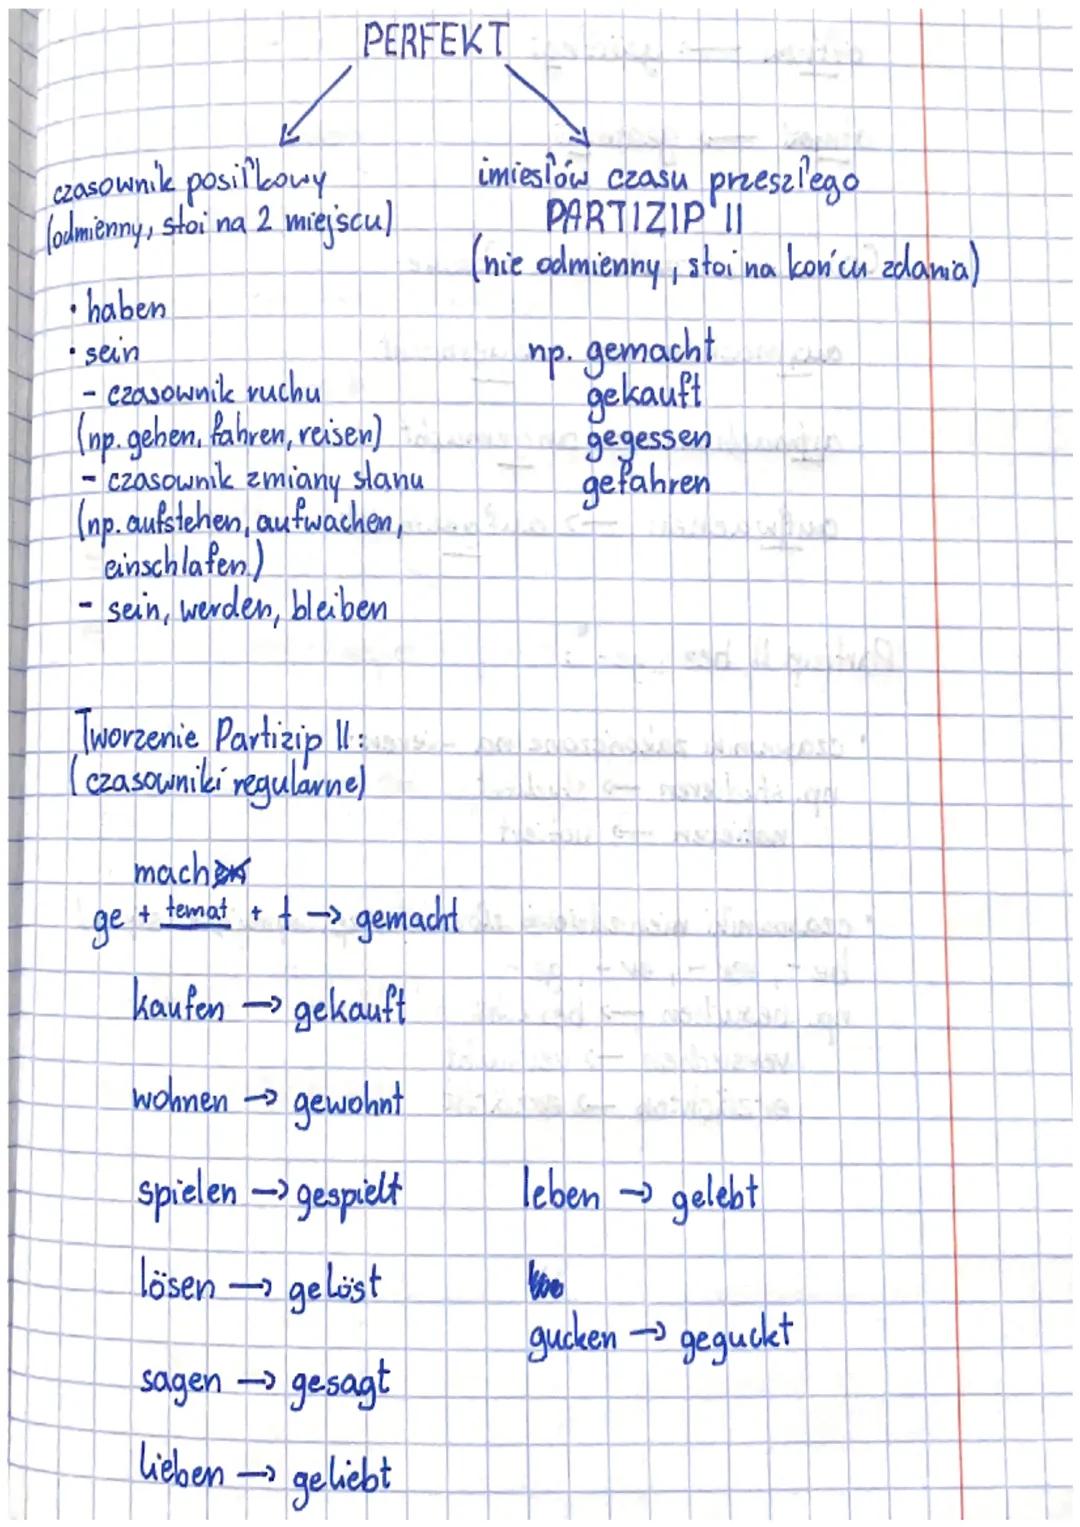 PERFEKT
czasownik posiłkowy
(odmienny, stoi na 2 miejscu)
• haben
• sein
- czasownik ruchu
(np. gehen, fahren, reisen)
- czasownik zmiany stanu
(np. aufstehen, aufwachen,
einschlafen)
- sein, werden, bleiben
imiesłów czasu przeszłego
PARTIZIP II
(nie odmienny, stoi na końcu zdania)
np. gemacht
gekauft
gegessen
gefahren
Tworzenie Partizip II:
(czasowniki regularne)
machen
ge + temat + t → gemacht
kaufen → gekauft
wohnen → gewohnt
spielen → gespielt
lösen → gelöst
sagen → gesagt
lieben → geliebt
leben → gelebt
gucken → geguckt